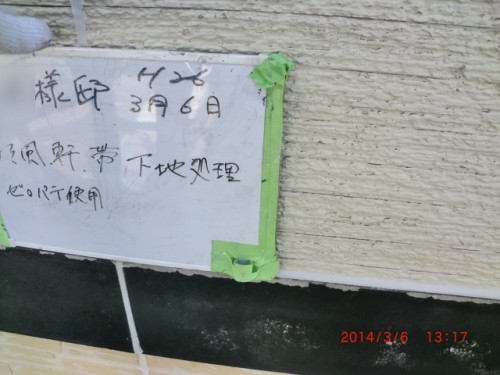 様邸 H26
3月6日
破風軒帯 下地処理
ゼロパテ使用
2014/3/6 13:17